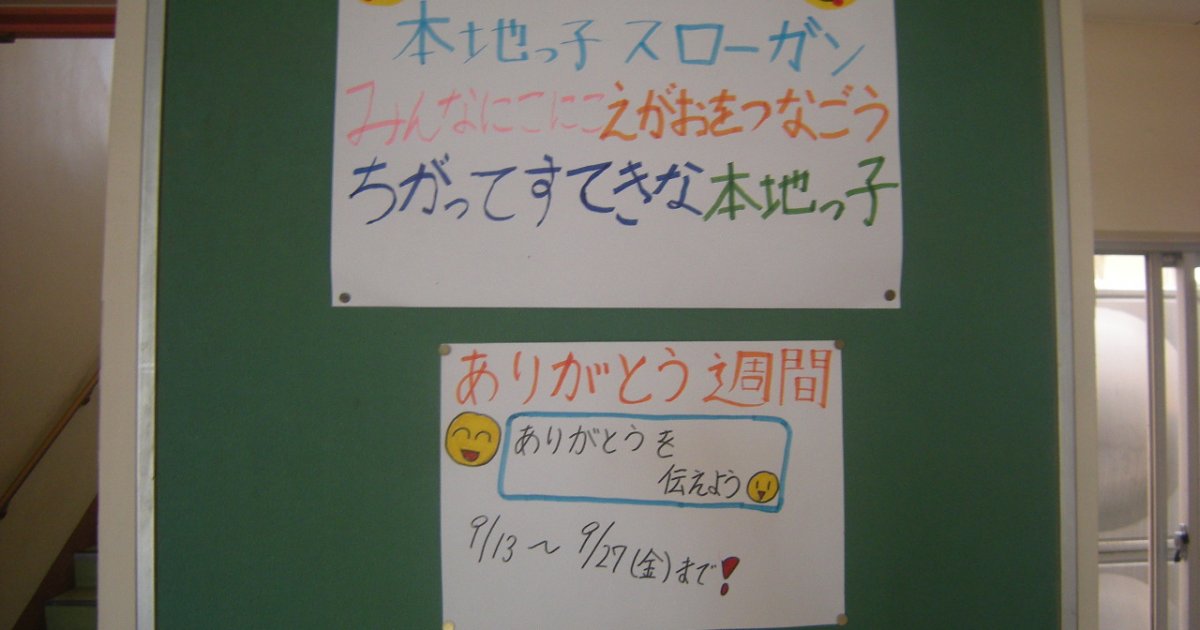 本地っ子 スローガン
みんなにこにこえがおをつなごう
ちがってすてきな本地っ子
ありがとう週間
ありがとうを
伝えよう
9/13〜9/27(金)まで!